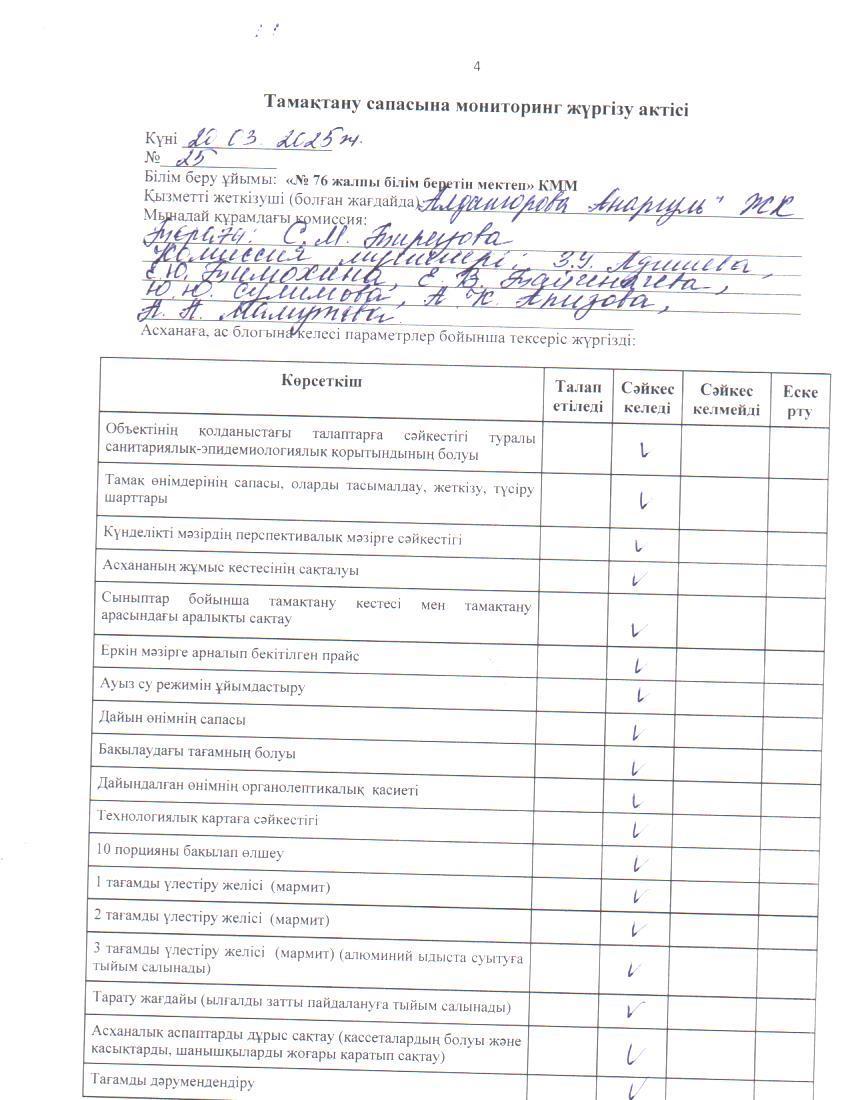 4
Тамақтану сапасына мониторинг жүргізу актісі
Күні 20 03. 2025 ж.
№ 25
Білім беру ұйымы: «№ 76 жалпы білім беретін мектеп» КММ
Қызметті жеткізуші (болған жағдайда) Алдангорова Анаргуль" ЖК
Мынадай құрамдағы комиссия:
Төраға: С. М.
Комиссия мүшелері: З.У.
Е.Ю. Тимохина, Е. В.
Ю. Ю. Сулимова, А. К.
А. А.
Асханаға, ас блогына келесі параметрлер бойынша тексеріс жүргізді:
Көрсеткіш Талап Сәйкес Сәйкес Еске
етіледі келеді келмейді рту
Объектінің қолданыстағы талаптарға сәйкестігі туралы
санитариялық-эпидемиологиялық қорытындының болуы
Тамақ өнімдерінің сапасы, оларды тасымалдау, жеткізу, түсіру
шарттары
Күнделікті мәзірдің перспективалық мәзірге сәйкестігі
Асхананың жұмыс кестесінің сақталуы
Сыныптар бойынша тамақтану кестесі мен тамақтану
арасындағы аралықты сақтау
Еркін мәзірге арналып бекітілген прайс
Ауыз су режимін ұйымдастыру
Дайын өнімнің сапасы
Бақылаудағы тағамның болуы
Дайындалған өнімнің органолептикалық касиеті
Технологиялық картаға сәйкестігі
10 порцияны бақылап өлшеу
1 тағамды үлестіру желісі (мармит)
2 тағамды үлестіру желісі (мармит)
3 тағамды үлестіру желісі (мармит) (алюминий ыдыста суытуға
тыйым салынады)
Тарату жағдайы (ылғалды затты пайдалануға тыйым салынады)
Асханалық аспаптарды дұрыс сақтау (кассеталардың болуы және
қасықтарды, шанышқыларды жоғары қаратып сақтау)
Тағамды дәрумендендіру